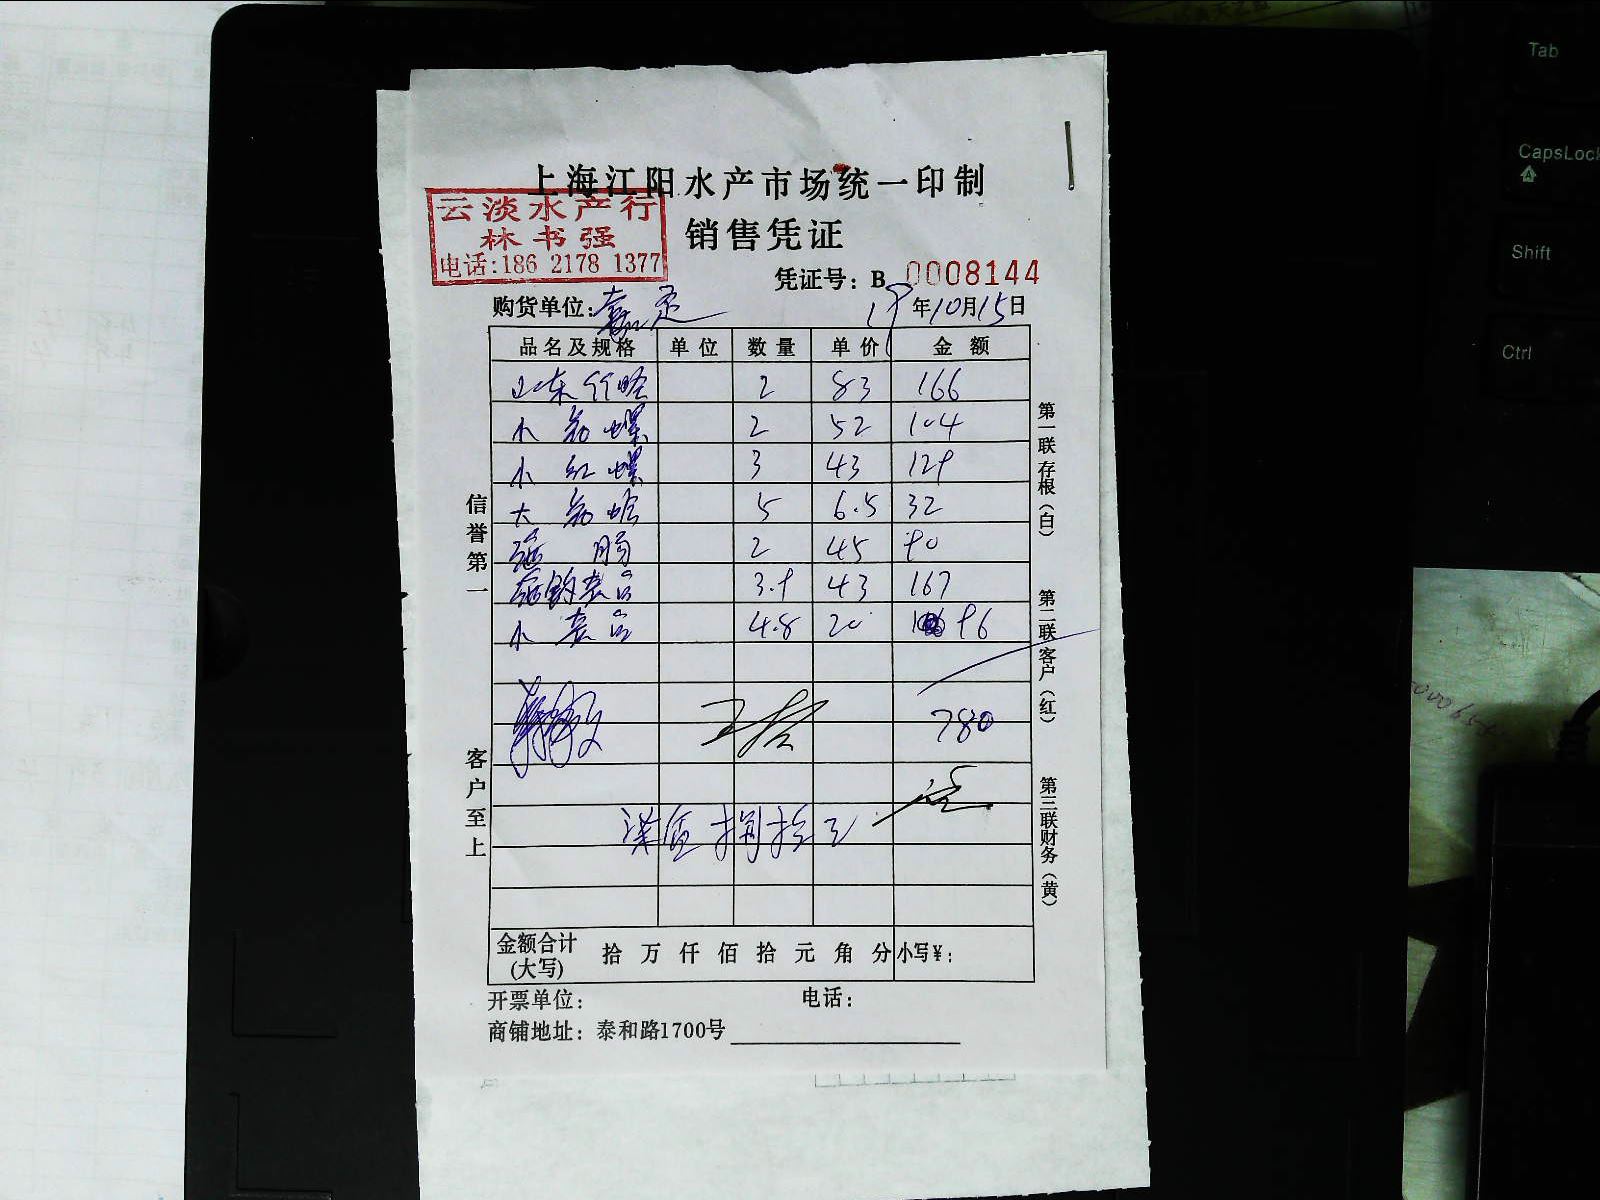 上海江阳水产市场统一印制
云淡水产行
林书强
电话:186 2178 1377
销售凭证
凭证号：B 0008144
购货单位:嘉定
19年10月15日
品名及规格 单位 数量 单价 金额
山东竹蛏 2 83 166
小 螺 2 52 104
小红螺 3 43 129
大 蛤 5 6.5 32
肠 2 45 90
3.9 43 167
小 4.8 20 96
780
柒佰捌拾元
金额合计(大写) 拾 万 仟 佰 拾 元 角 分 小写¥:
开票单位: 电话:
商铺地址: 泰和路1700号
信誉第一
客户至上
第一联存根(白)
第二联客户(红)
第三联财务(黄)
Tab
CapsLock
Shift
Ctrl